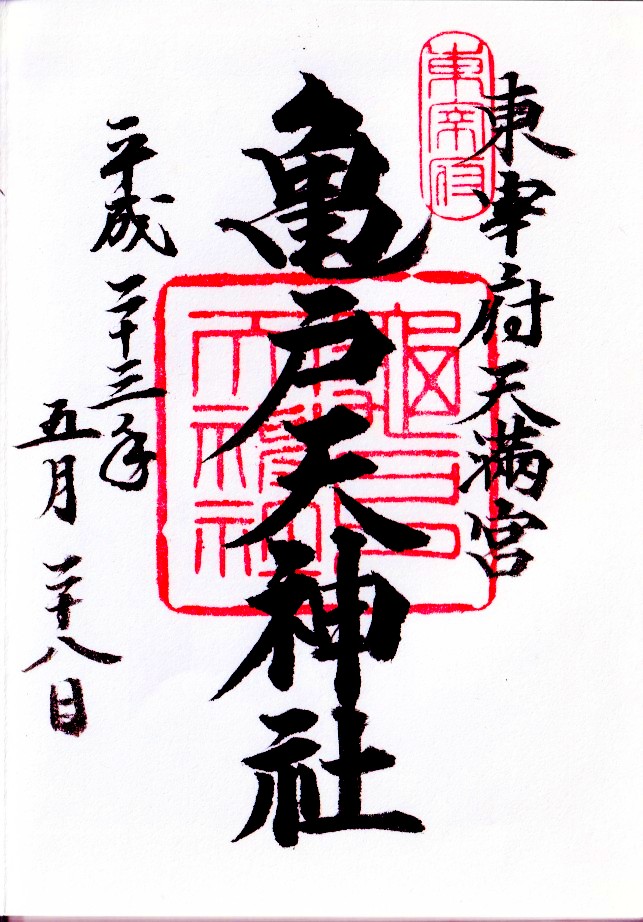 東宰府天満宮
東宰府
亀戸天神社
平成二十三年
五月二十八日